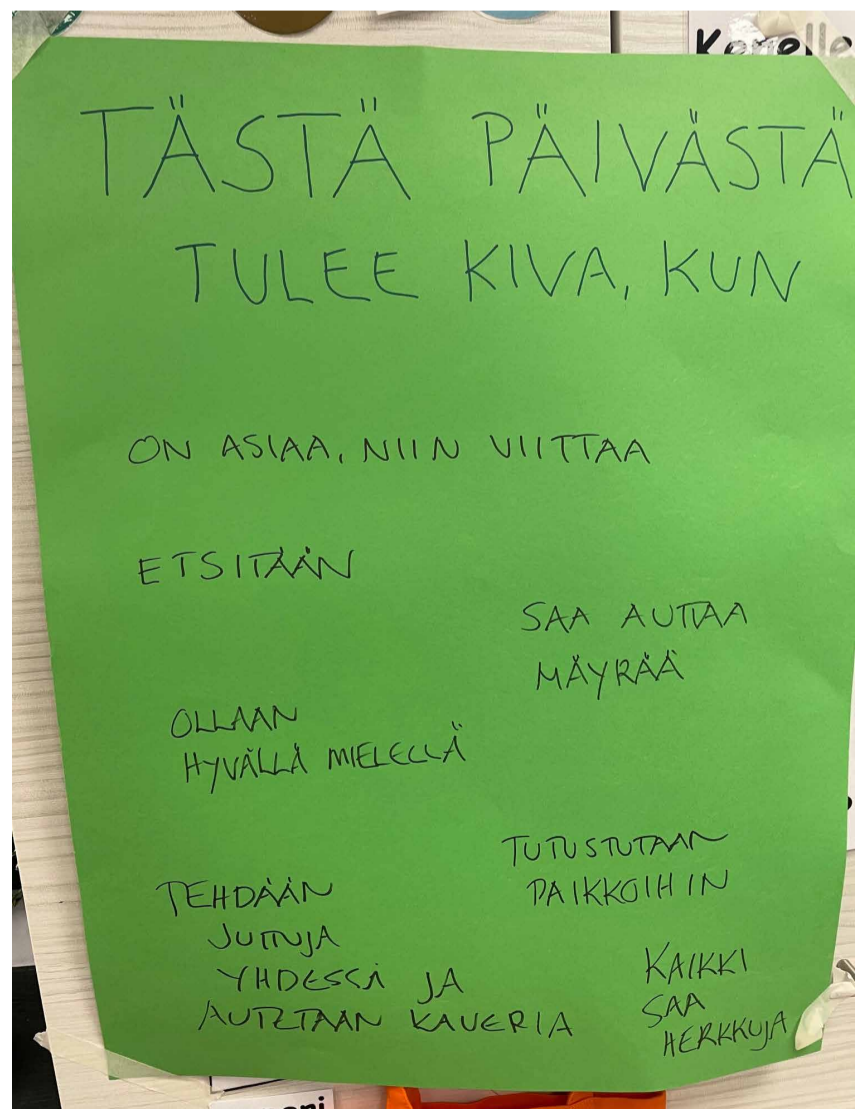 Kenelle
TÄSTÄ PÄIVÄSTÄ
TULEE KIVA, KUN
ON ASIAA, NIIN VIITTAA
ETSITÄÄN
SAA AUTTAA
MÄYRÄÄ
OLLAAN
HYVÄLLÄ MIELELLÄ
TUTUSTUTAAN
PAIKKOIHIN
TEHDÄÄN
JUTTUJA
YHDESSÄ JA
AUTETAAN KAVERIA
KAIKKI
SAA
HERKKUJA